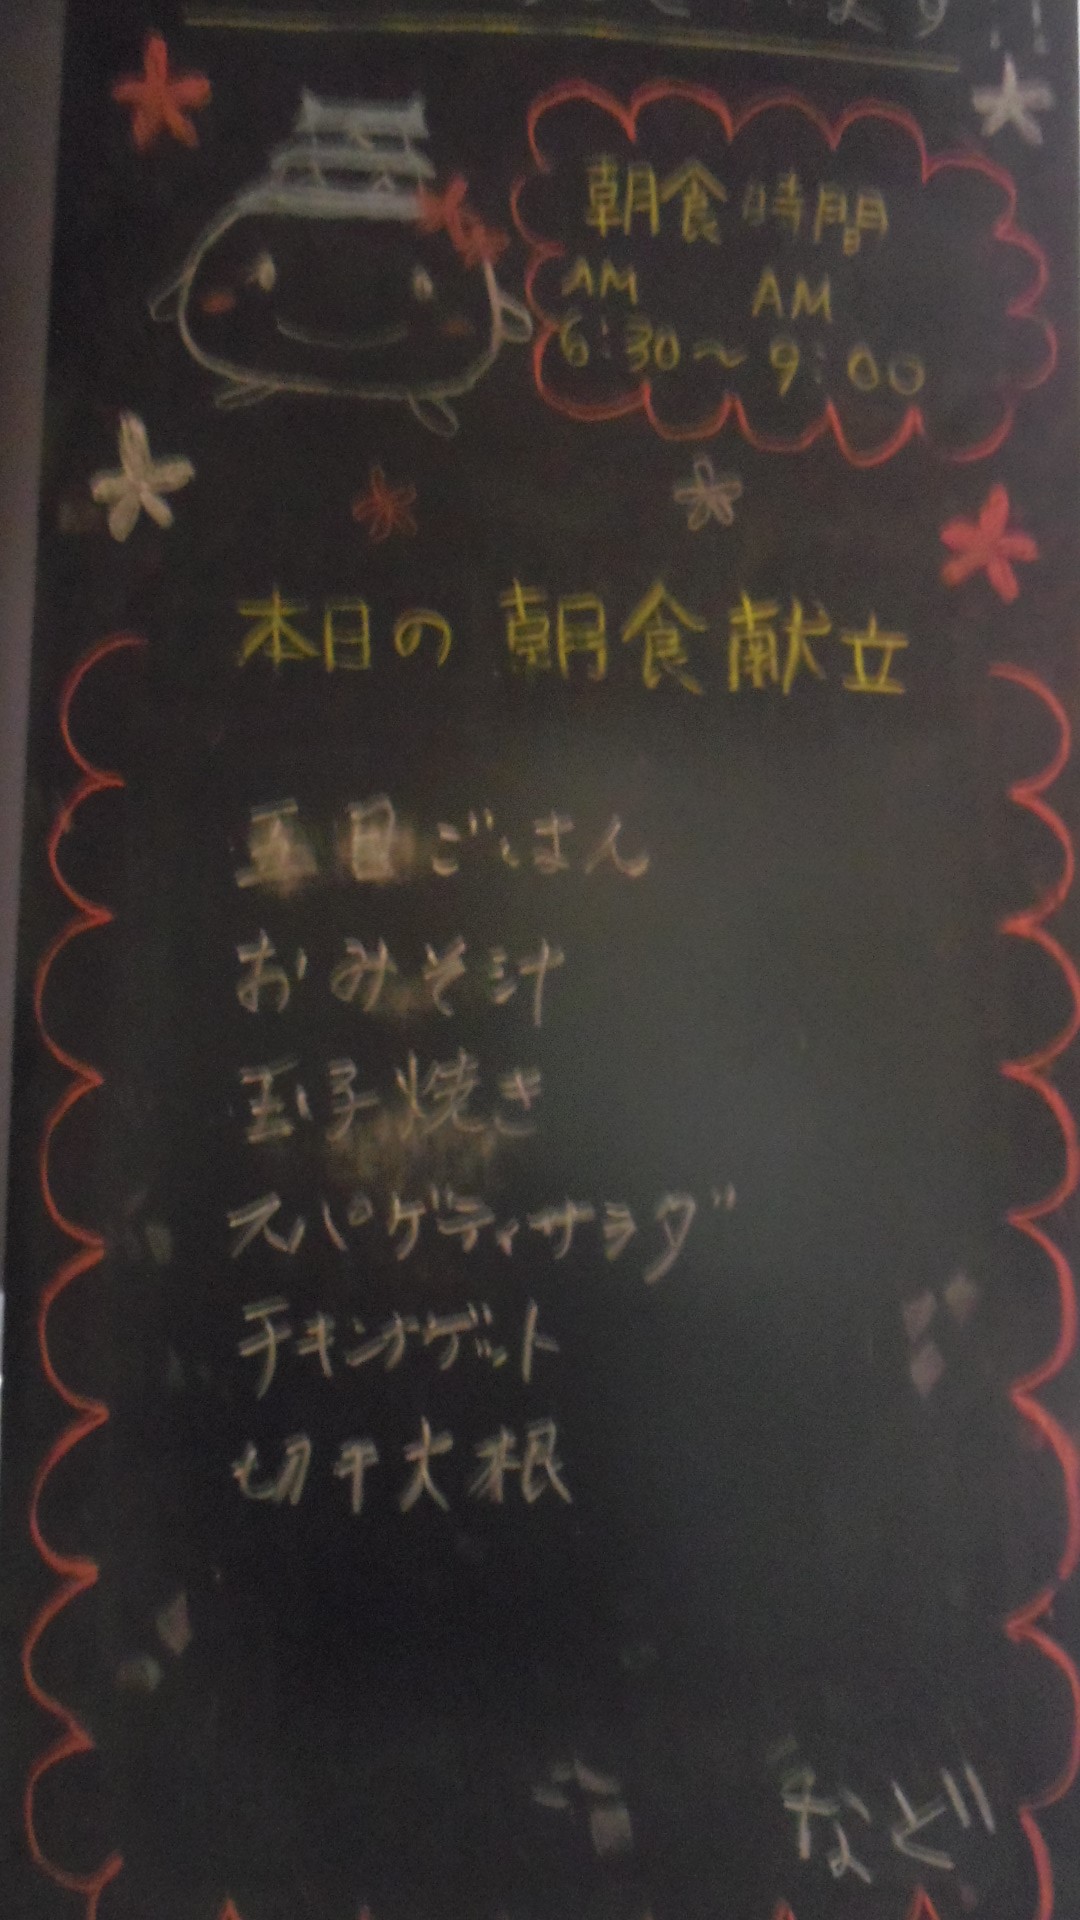 朝食時間
AM AM
6:30〜9:00
本日の朝食献立
五目ごはん
おみそ汁
玉子焼き
スパゲティサラダ
チキンナゲット
切干大根
など